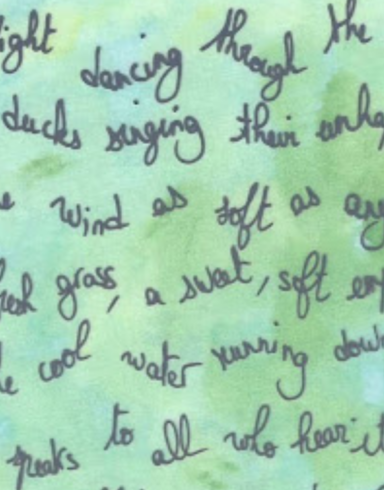 ight dancing through the
ducks singing their unha
wind as soft as any
esh grass, a sweat, soft em
e cool water running down
speaks to all who hear it